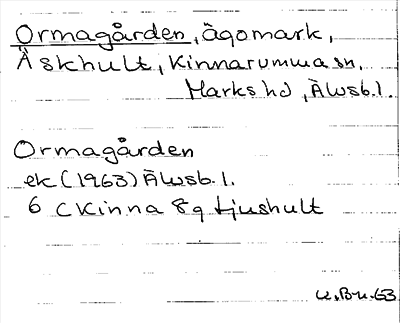 Ormagården, ägomark,
Äskhult, Kinnarumma sn,
Marks hd, Älvsb. l.
Ormagården
ek (1963) Älvsb. l.
6 C Kinna 8g Ljushult